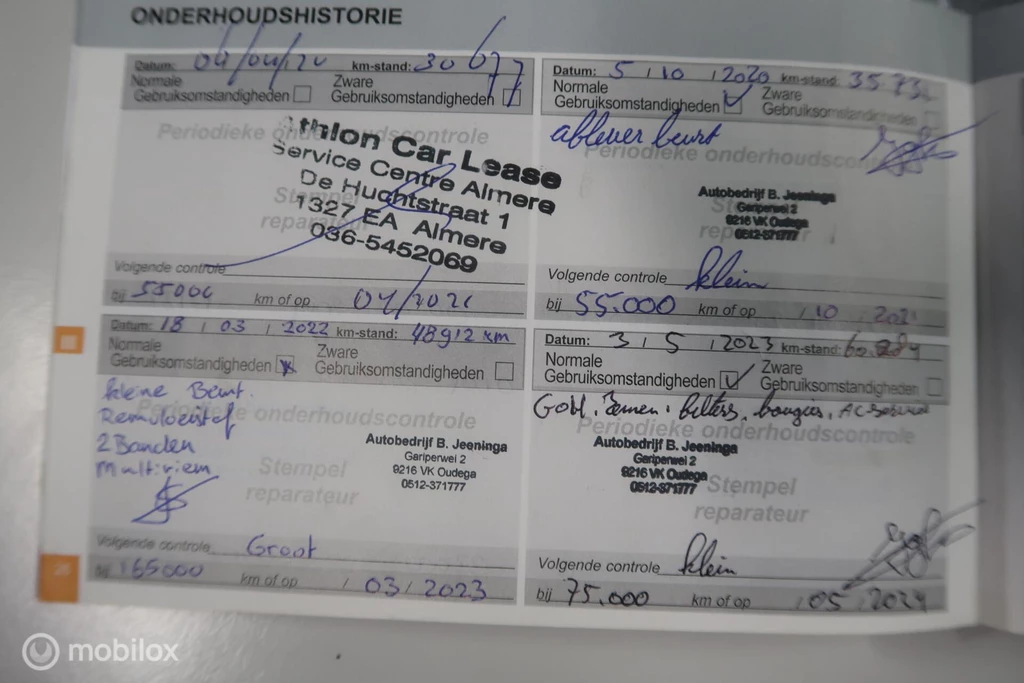 ONDERHOUDSHISTORIE
Datum: 04/04/20 km-stand: 30677
Normale Gebruiksomstandigheden Zware Gebruiksomstandigheden
Periodieke onderhoudscontrole
Athlon Car Lease
Service Centre Almere
De Huchtstraat 1
1327 EA Almere
036-5452069
Stempel
reparateur
Volgende controle
bij 55000 km of op 04/2021
Datum: 5 / 10 / 2020 km-stand:
Normale Gebruiksomstandigheden Zware Gebruiksomstandigheden
aflever beurt
Periodieke onderhoudscontrole
Autobedrijf B. Jeeninga
Gariperwei 2
9216 VK Oudega
0512-371777
Volgende controle klein
bij 55.000 km of op / 10 / 2021
Datum: 18 / 03 / 2022 km-stand: 48912 km
Normale Gebruiksomstandigheden Zware Gebruiksomstandigheden
kleine Beurt.
Remvloeistof
2 Banden
Multiriem
Periodieke onderhoudscontrole
Autobedrijf B. Jeeninga
Gariperwei 2
9216 VK Oudega
0512-371777
Stempel
reparateur
Volgende controle Groot
bij 165000 km of op / 03 / 2023
Datum: 3 / 5 / 2023 km-stand:
Normale Gebruiksomstandigheden Zware Gebruiksomstandigheden
filters, bougies,
Periodieke onderhoudscontrole
Autobedrijf B. Jeeninga
Gariperwei 2
9216 VK Oudega
0512-371777
Stempel
reparateur
Volgende controle klein
bij 75.000 km of op / 05 / 2024
26
mobilox